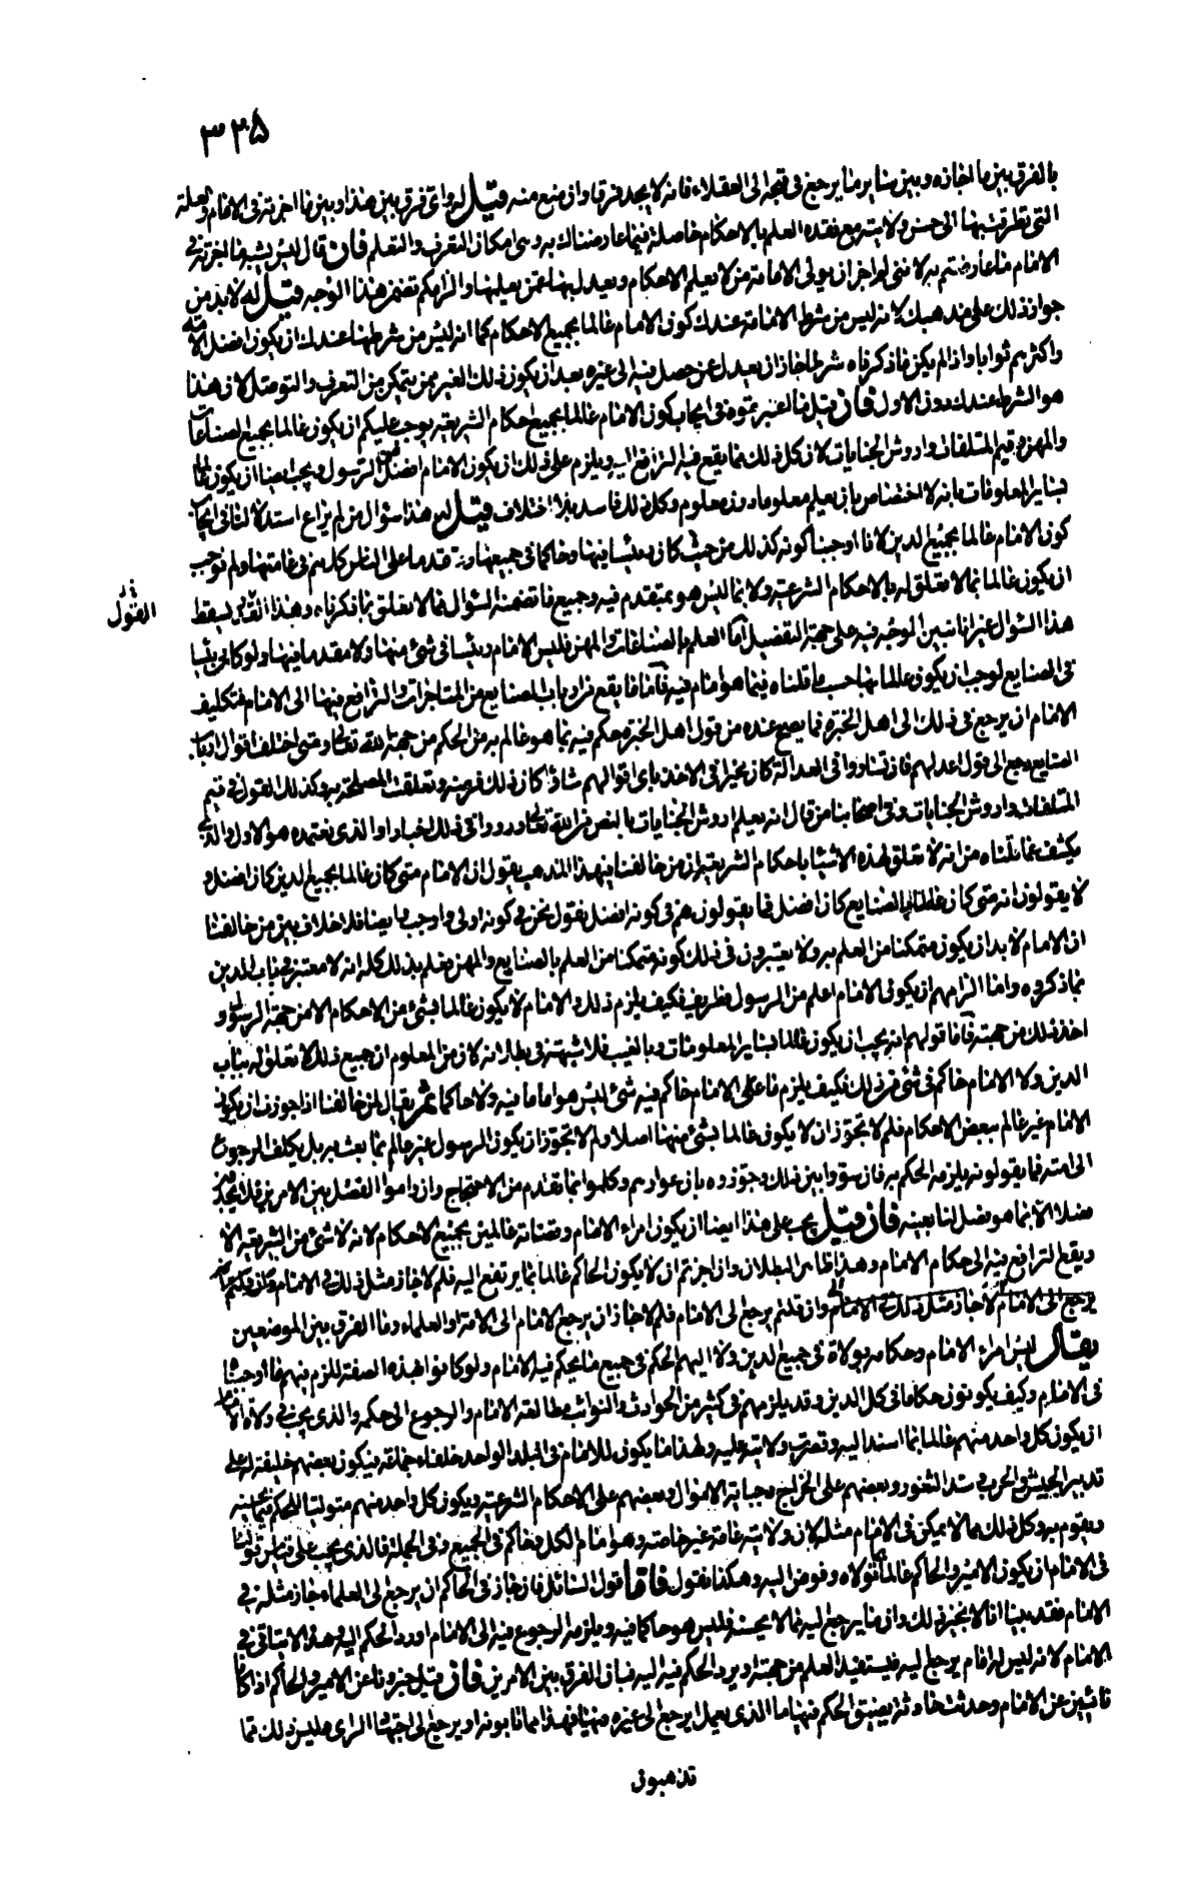 ٣٢٥
بالفرق بين ما اجازه وبين ساير ما يرجع في قبحه الى العقلاء فانه لا يجد فرقا وان منع منه قيل له واى فرق بين هذا وبين ما اجزته في الامام والعلة
التي تطرقت بها الى حسن ولايته مع فقده العلم بالاحكام حاصلة فيما عارضناك به وهي امكان التعرف والتعلم فان قال ليس يشبه ما اجزته في
الامام ما عارضتم به لانني لم اجز ان يولى الامامة من لا يعلم الاحكام ويعدل بها عمن يعلمها والزامكم تضمن هذا الوجه قيل له لا بد من
جواز ذلك على مذهبك لانه ليس من شرط الامامة عندك كون الامام عالما بجميع الاحكام كما انه ليس من شرطها عندك ان يكون افضل الامة
واكثرهم ثوابا واذا لم يكن ما ذكرناه شرطا جاز ان يعدل عمن حصل فيه الى غيره بعد ان يكون ذلك الغير ممن يتمكن من التعرف والتوصل لان هذا
هو الشرط عندك دون الاول فان قيل ما اعتبرتموه في ايجاب كون الامام عالما بجميع احكام الشريعة يوجب عليكم ان يكون عالما بجميع الصناعات
والمهن وقيم المتلفات واروش الجنايات لان كل ذلك مما يقع فيه الترافع اليه ويلزم على ذلك ان يكون الامام افضل من الرسول ويجب ايضا ان يكون عالما
بساير المعلومات بانه لا اختصاص بان يعلم معلوما دون معلوم وكل ذلك فاسد بلا اختلاف قيل له هذا سؤال من لم يراع استدلالنا في ايجاب
كون الامام عالما بجميع الدين لانا اوجبنا كونه كذلك من حيث كان رئيسا فيها وحاكما في جميعها وقدما على الناس كلهم في عامتها ولم نوجب
ان يكون عالما بما لا تعلق له بالاحكام الشرعية ولا بما ليس هو متقدم فيه وجميع ما تضمنه السؤال مما لا تعلق بما ذكرناه وهذا القدر يسقط
القول
هذا السؤال غير انا نبين الوجه فيه على جهة التفصيل اما العلم بالصناعات والمهن فليس الامام رئيسا في شئ منها ولا مقدما فيها ولو كان رئيسا
في الصنايع لوجب ان يكون عالما بها حسب ما قلناه فيما هو امام فيه فاما ما يقع من ارباب الصنايع من المشاجرات والترافع فيها الى الامام فتكليف
الامام ان يرجع في ذلك الى اهل الخبرة فما يصح عنده من قول اهل الخبرة حكم فيه بما هو عالم به من الحكم من جهة الله تعالى ومتى اختلف اقوال ارباب
الصنايع رجع الى قول اعدلهم فان تساووا في العدالة كان مخيرا في الاخذ باى اقوالهم شاء وكان ذلك فرضه وتعلقت المصلحة به وكذلك القول في قيم
المتلفات واروش الجنايات وفي اصحابنا من قال انه يعلم اروش الجنايات بالنص من الله تعالى ورووا في ذلك اخبارا والذى نعتمده هو الاول والذى
يكشف عما قلناه من انه لا تعلق لهذه الاشيا باحكام الشريعة ان من خالفنا في هذا المذهب يقول ان الامام متى كان عالما بجميع الدين كان افضل و
لا يقولون انه متى كان عالما بالصنايع كان افضل فما يقولون هم في كونه افضل نقول نحن في كونه اولى واوجب وايضا فلا خلاف بين من خالفنا
ان الامام لا بد ان يكون متمكنا من العلم به ولا يعتبرون في ذلك كونه متمكنا من العلم بالصنايع والمهن فعلم بذلك كله انه لا معتبر في باب الدين
بما ذكروه واما الزامهم ان يكون الامام اعلم من الرسول فطريف فكيف يلزم ذلك والامام لا يكون عالما بشئ من الاحكام الا من جهة الرسول و
اخذ ذلك من جهته فاما قولهم انه يجب ان يكون عالما بساير المعلومات وبالغيب فلا شبهة في بطلانه لان من المعلوم ان جميع ذلك لا تعلق له بباب
الدين ولا الامام حاكم في شئ من ذلك فكيف يلزم ما على الامام حاكم فيه شئ ليس هو اماما فيه ولا حاكما ثم يقال لمن خالفنا اذا جوزت ان يكون
الامام غير عالم ببعض الاحكام فلم لا تجوز ان لا يكون عالما بشئ منها اصلا ولم لا تجوز ان يكون الرسول غير عالم بما بعث به بل يكلف الرجوع
الى امته فما يقولونه يلزمه الحكم به فان سووا بين ذلك وجوزوه بان عوارهم وكلموا بما تقدم من الاحتجاج وان راموا الفصل بين الامرين فلن يجدوا
فصلا الا بما هو فصل لنا بعينه فان قيل يجب على هذا ايضا ان يكون امراء الامام وقضاته عالمين بجميع الاحكام لانه لا شئ من الشريعة الا
ويقع الترافع فيه الى حكام الامام وهذا ظاهر البطلان وان اجزتم ان لا يكون الحاكم عالما بما يرتفع اليه فلم لا جاز مثل ذلك في الامام
يرجع الى الامام لا جاز مثل ذلك في الامام وان قلتم يرجع الى الامام فلم لا جاز ان يرجع الامام الى الامة او العلماء وما الفرق بين الموضعين
يقال ليس امراء الامام وحكامه بولاة في جميع الدين ولا اليهم الحكم في جميع ما يحكم فيه الامام ولو كانوا بهذه الصفة للزم فيهم ما اوجبنا
في الامام وكيف يكونون حكاما في كل الدين وقد يلزمهم في كثير من الحوادث والنوائب مطالعة الامام والرجوع الى حكمه والذى يجب في ولاة الامام
ان يكون كل واحد منهم عالما بما اسند اليه وقصرت ولايته عليه ولهذا ما يكون للامام في البلد الواحد خلفاء جماعة فيكون بعضهم خليفة له على
تدبير الجيش والحرب وسد الثغور وبعضهم على الخراج وجباية الاموال وبعضهم على الاحكام الشرعية ويكون كل واحد منهم متوليا للحكم فيما
ويقوم به وكل ذلك مما لا يمكن في الامام مثله لان ولايته عامة غير خاصة وهو امام الكل وحاكم في الجميع وفي الجملة فالذى يجب على قياس قولنا
في الامام ان يكون الامير والحاكم عالما بما تولاه وفوض اليه وهكذا نقول فاما قول السائل فان جاز في الحاكم ان يرجع الى العلماء جاز مثله في
الامام فقد بينا انا لا نجيز ذلك وان ما يرجع اليه مما لا يحسنه فليس هو حاكما فيه ويلزمه الرجوع فيه الى الامام او رد الحكم اليه وهذا لا يتاتى في
الامام لانه ليس له امام يرجع اليه فيستفيد العلم من جهته او يرد الحكم فيه اليه فبان الفرق بين الامرين فان قيل خبرونا عن الامير والحاكم اذا كانا
نائبين عن الامام وحدثت حادثة يضيق الحكم فيها ما الذى يعمل ايرجع الى غيره فيها فهذا مما تابونه او يرجع الى اجتهاد الراى فليس ذلك مما
تذهبون